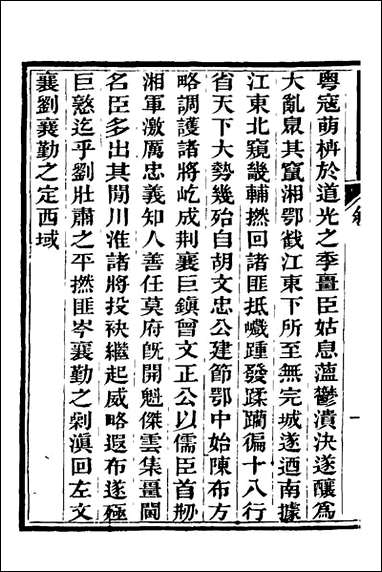 粵寇萌枿於道光之季畺臣姑息薀鬱潰決遂釀爲
大亂鼠其竄湘鄂戡江東下所至無完城遂迺南據
江東北窺畿輔撚回諸匪抵巇踵發蹂躪徧十八行
省天下大勢幾殆自胡文忠公建節鄂中始陳布方
略調護諸將屹成荆襄巨鎭曾文正公以儒臣首剏
湘軍激厲忠義知人善任莫府旣開魁傑雲集畺閫
名臣多出其閒川淮諸將投袂繼起威略遐布遂殛
巨憝迄乎劉壯肅之平撚匪岑襄勤之剿滇回左文
襄劉襄勤之定西域